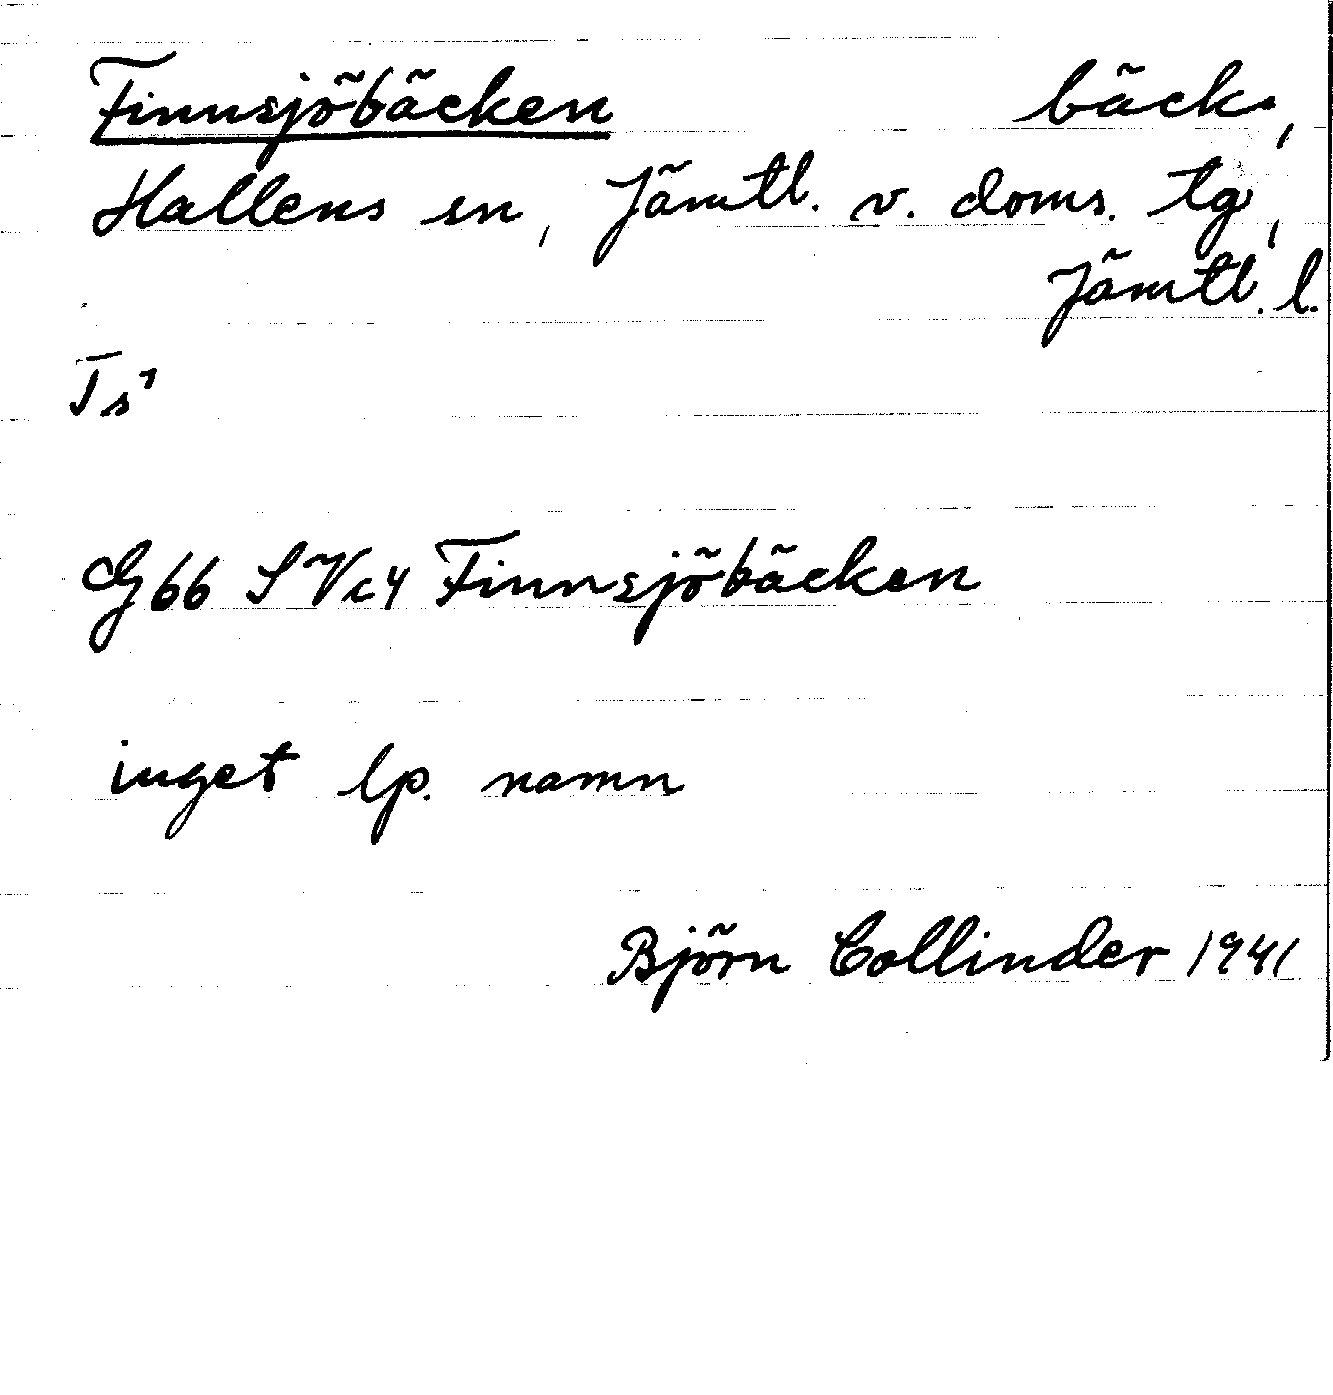 Finnsjöbäcken bäck,
Hallens sn, Jämtl. v. doms. tg,
Jämtl. l.
Ts
G 66 S V c 4 Finnsjöbäcken
inget lp. namn
Björn Collinder 1941